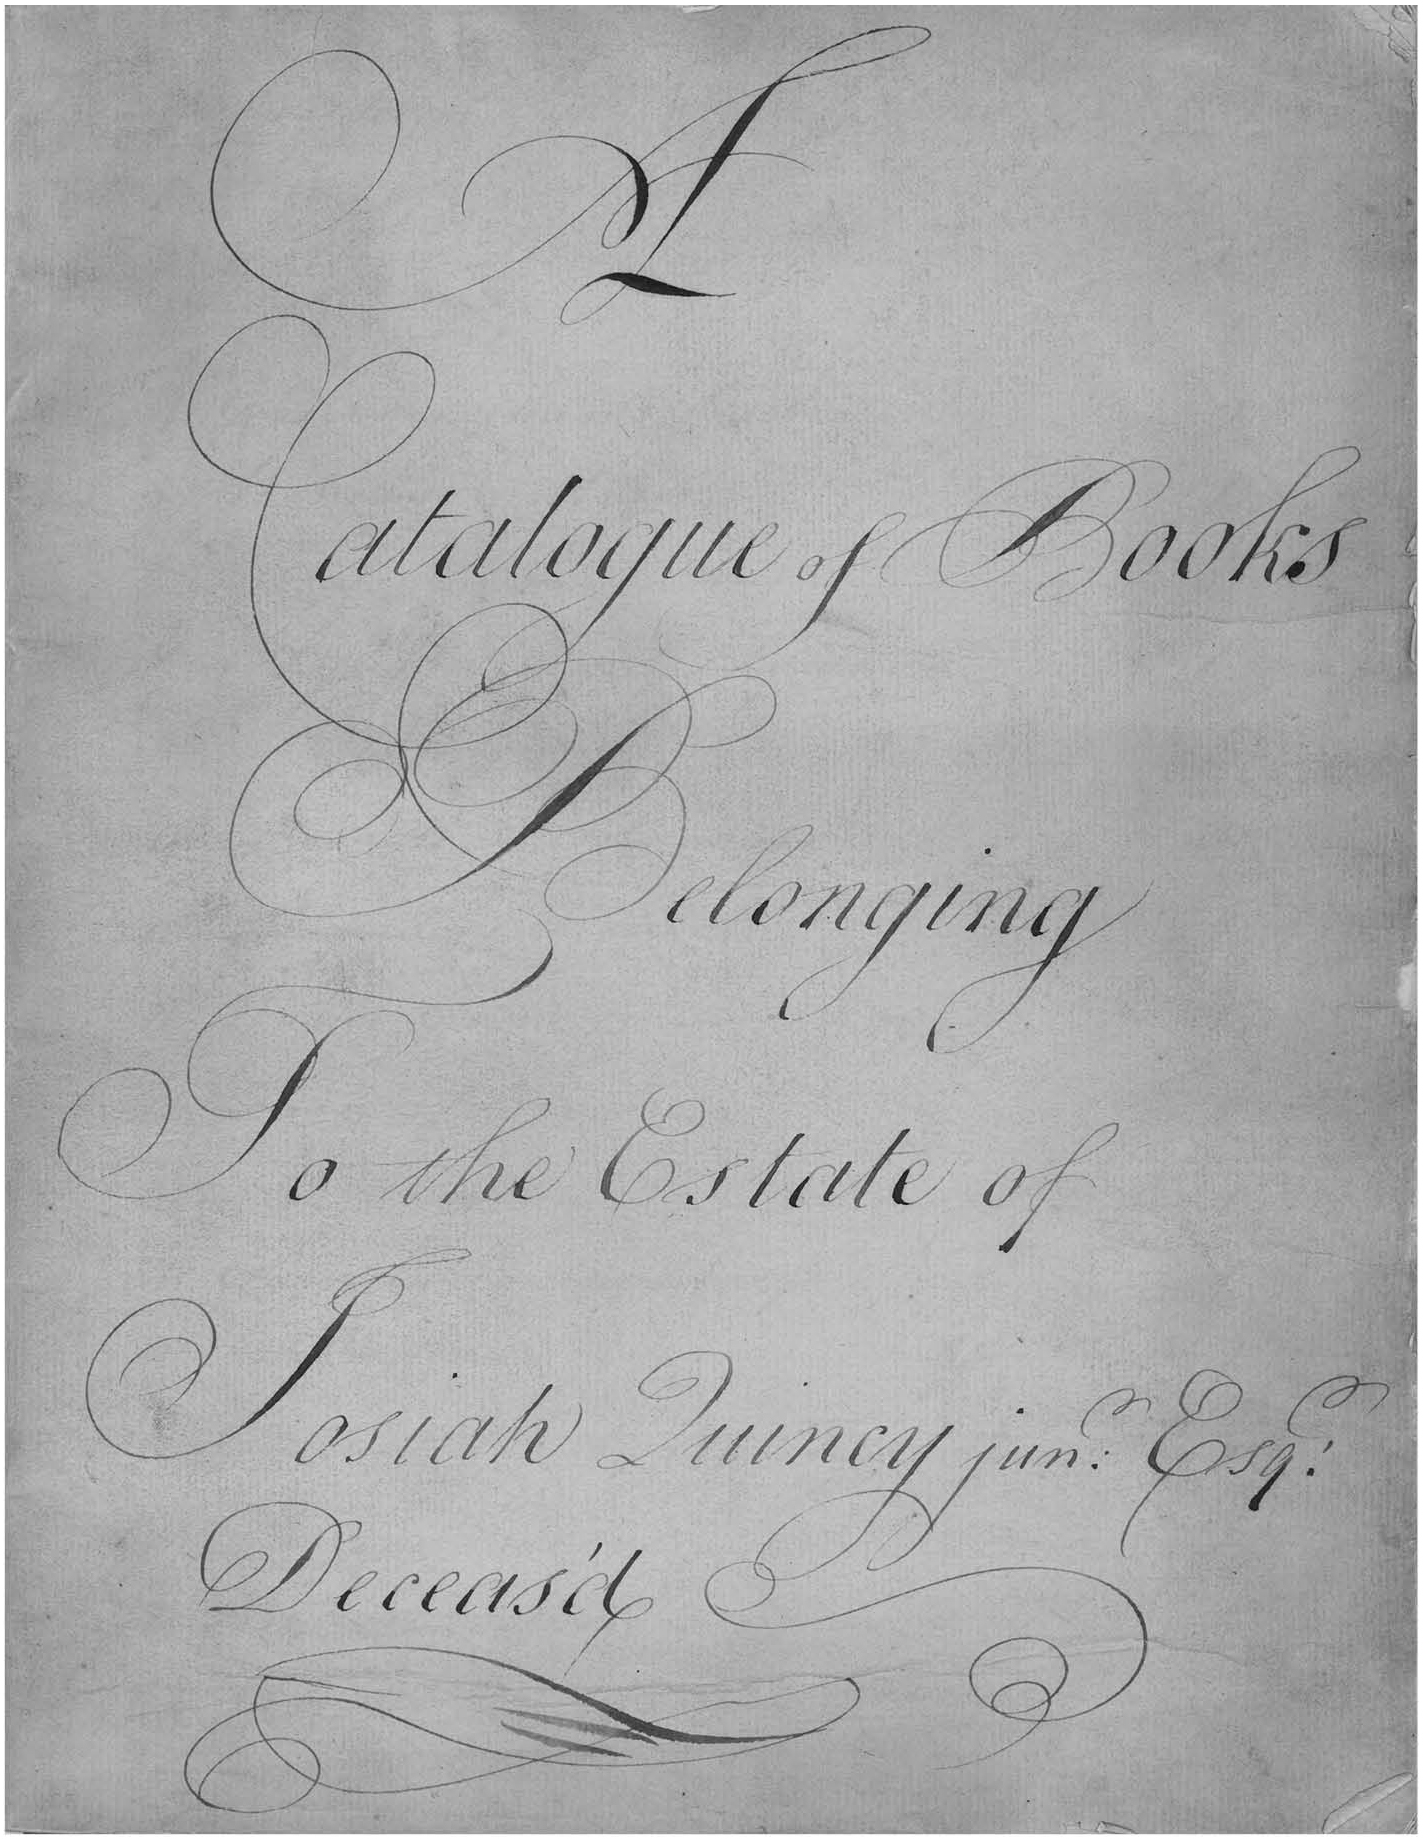 A
Catalogue of Books
Belonging
To the Estate of
Josiah Quincy junr: Esqr:
Deceas'd